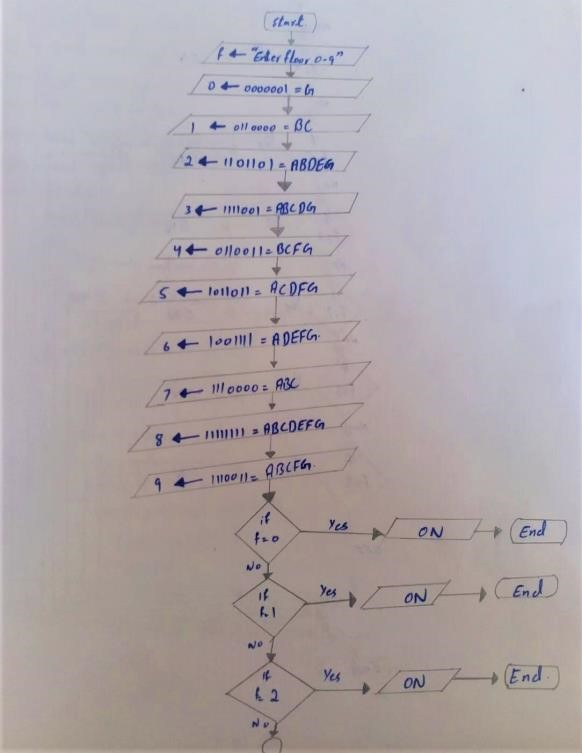 Start
f ← "Enter floor 0-9"
0 ← 0000001 = G
1 ← 0110000 = BC
2 ← 1101101 = ABDEG
3 ← 1111001 = ABCDG
4 ← 0110011 = BCFG
5 ← 1011011 = ACDFG
6 ← 1001111 = ADEFG.
7 ← 1110000 = ABC
8 ← 11111111 = ABCDEFG
9 ← 1110011 = ABCFG.
if
f=0
Yes
ON
End
No
if
f=1
Yes
ON
End
No
if
f= 2
Yes
ON
End.
No